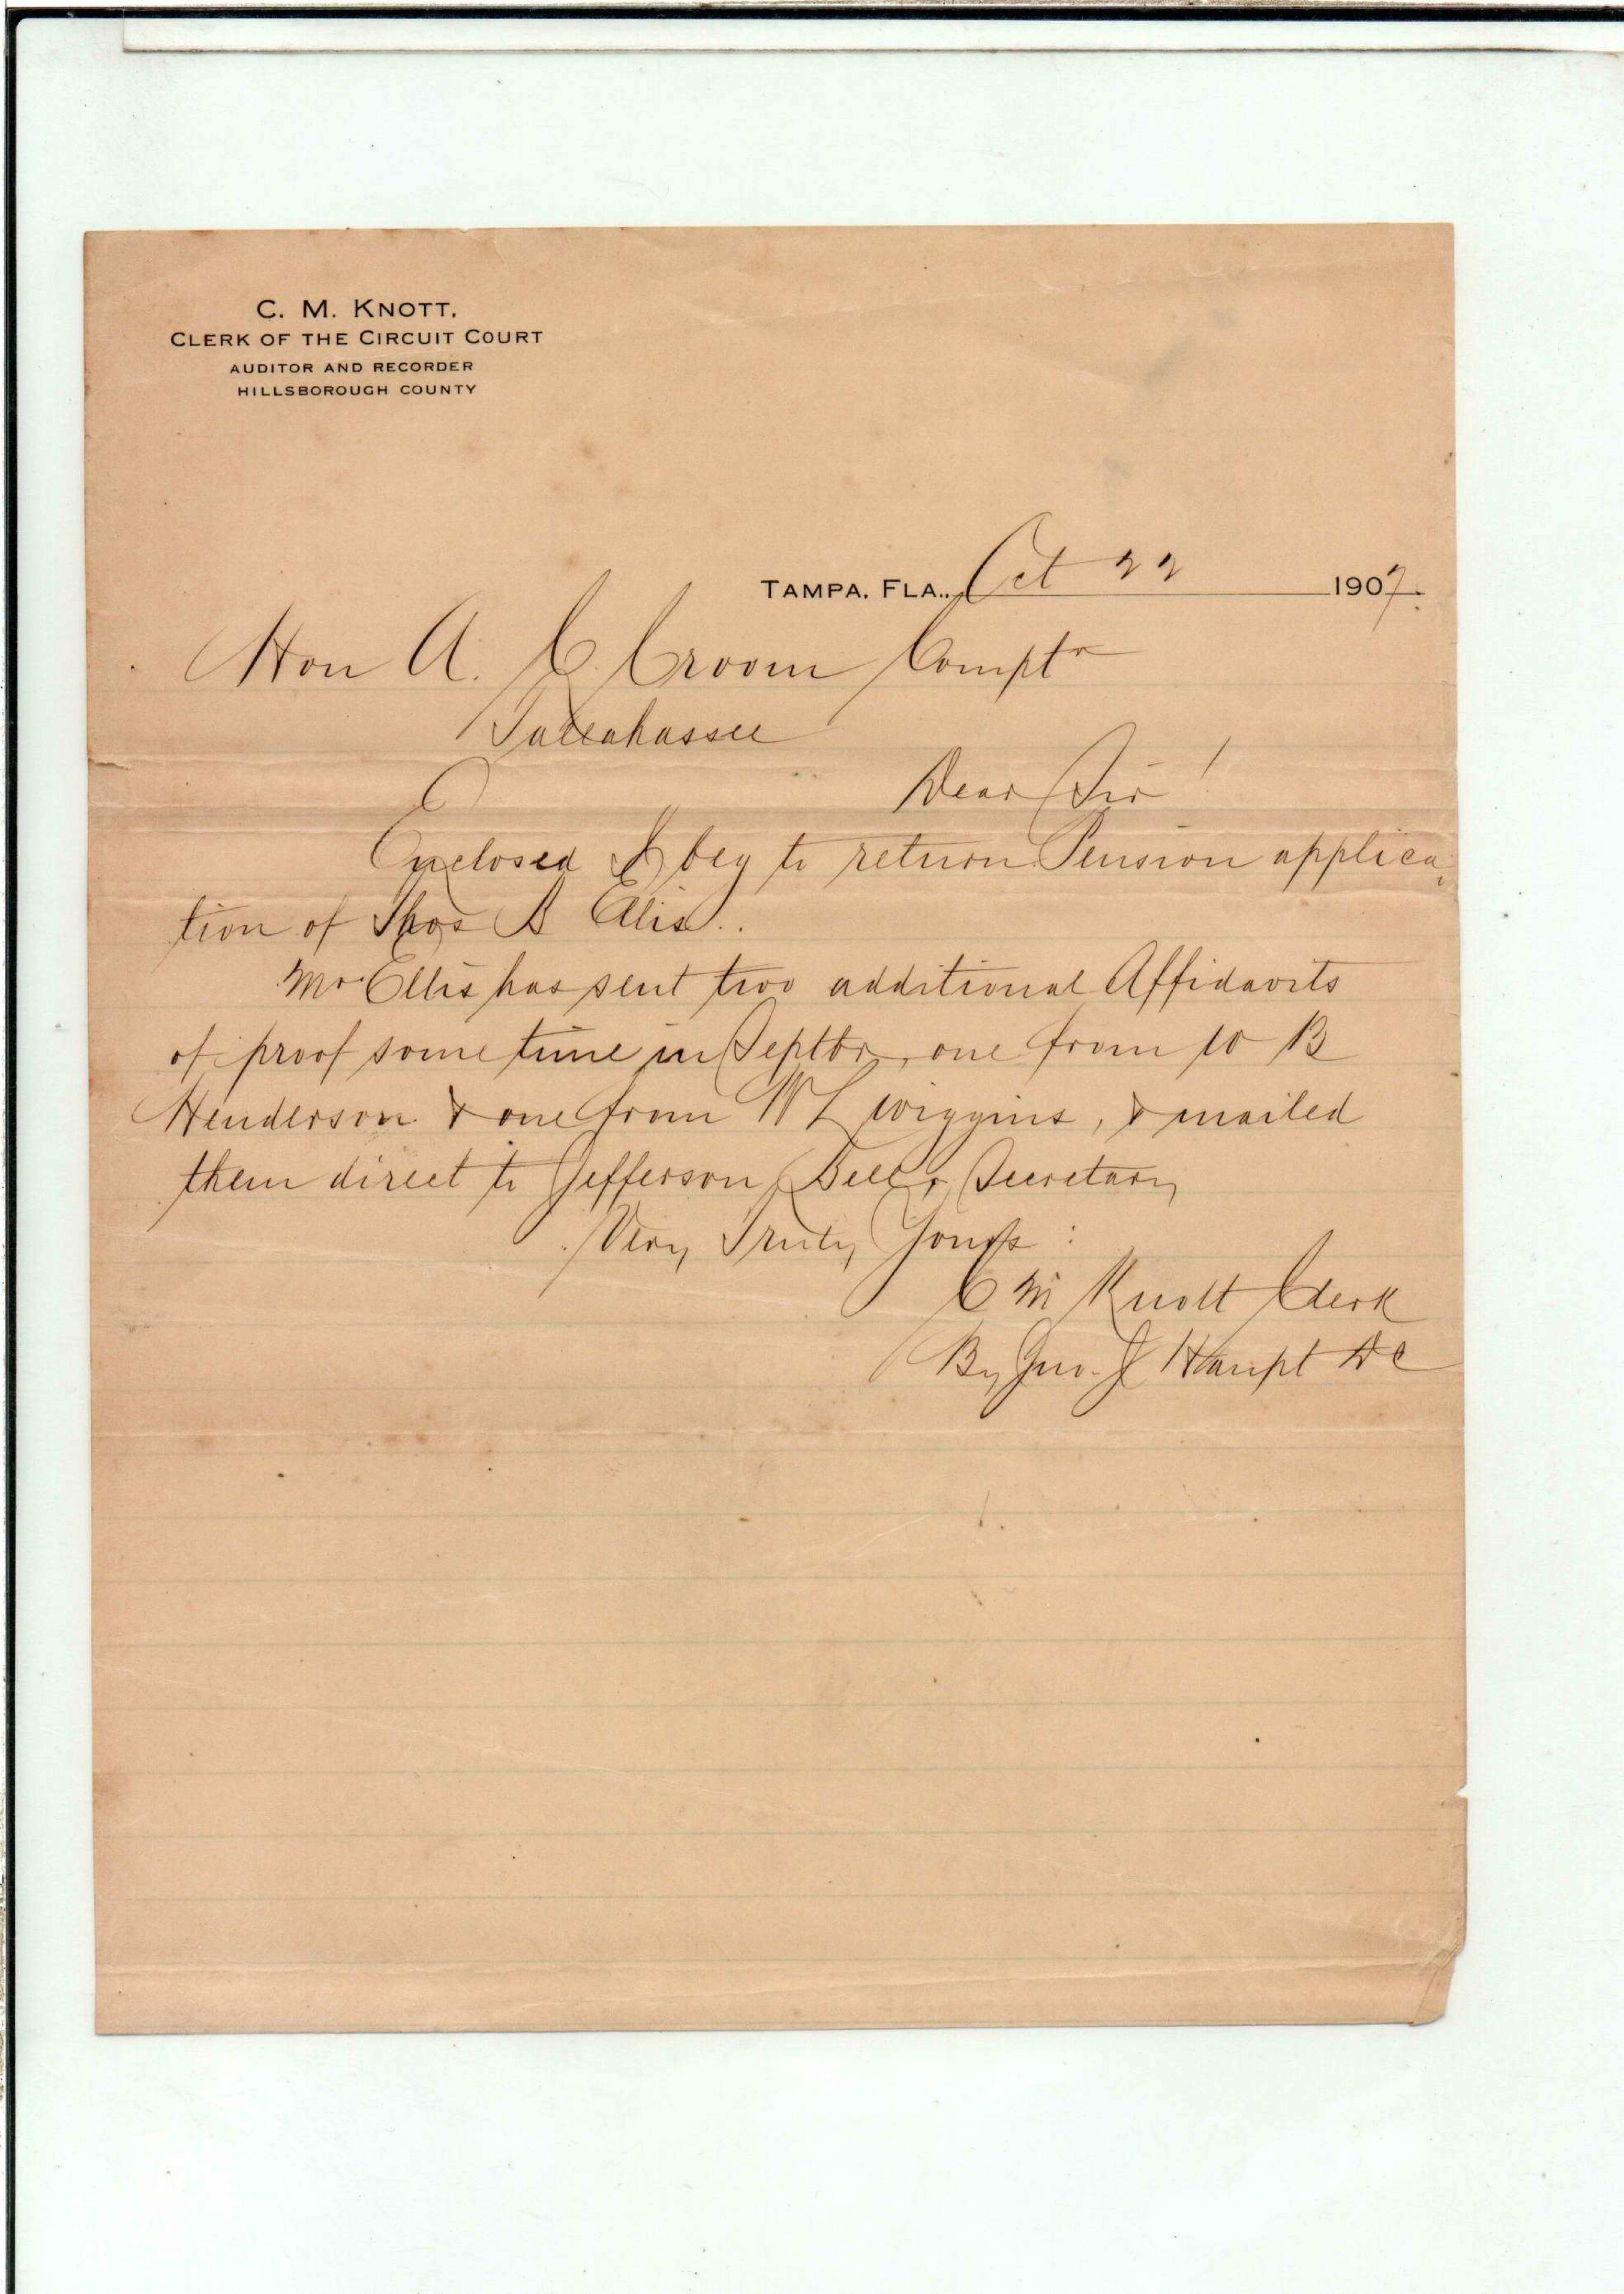 C. M. KNOTT.
CLERK OF THE CIRCUIT COURT
AUDITOR AND RECORDER
HILLSBOROUGH COUNTY
TAMPA. FLA., Oct 22 1907.
Hon A. C. Croom Comptr
Tallahassee
Dear Sir!
Enclosed I beg to return Pension applica
tion of Thos B Ellis.
Mr Ellis has sent two additional Affidavits
of proof some time in Septbr, one from W B
Henderson & one from W L Wiggins, & mailed
them direct to Jefferson Secretary
Very Truly Yours:
C M Knott Clerk
By Jno. J Haupt D C